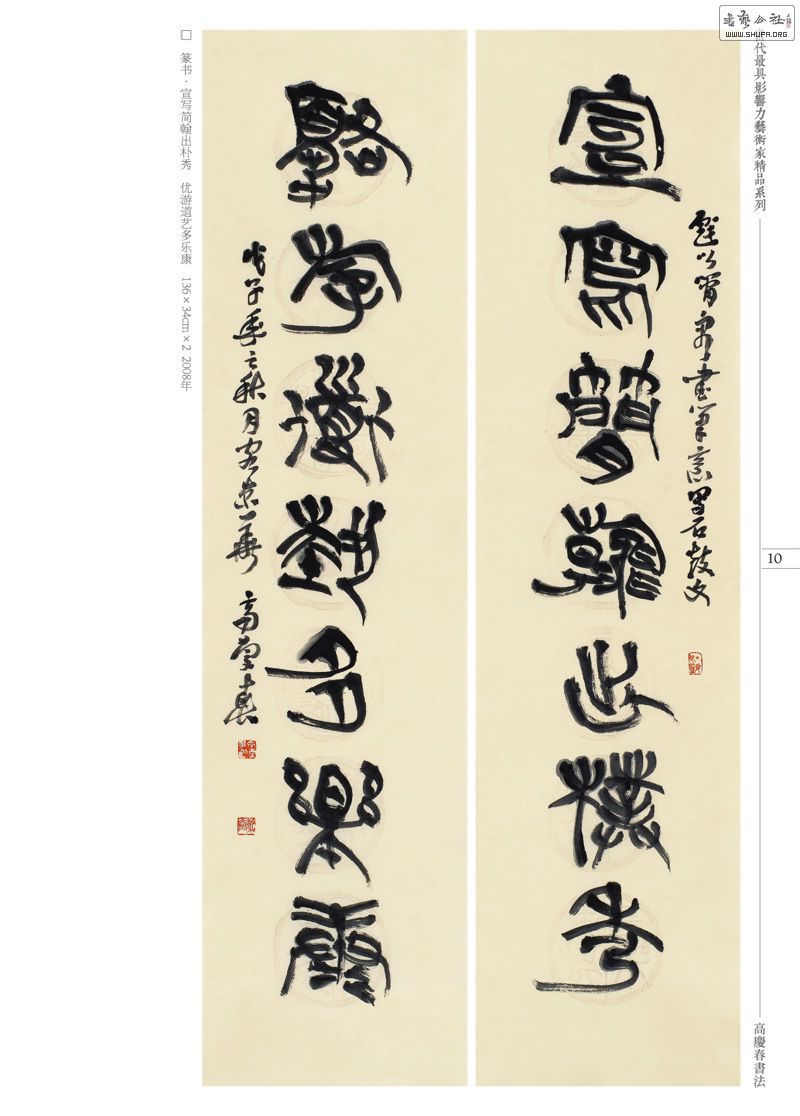 書藝公社
WWW.SHUFA.ORG
代最具影響力藝術家精品系列
10
高慶春書法
宣寫簡翰出樸秀
優游道藝多樂康
戊子年之秋月客京華 高慶春
□ 篆书·宣写简翰出朴秀 优游道艺多乐康 136×34cm×2 2008年